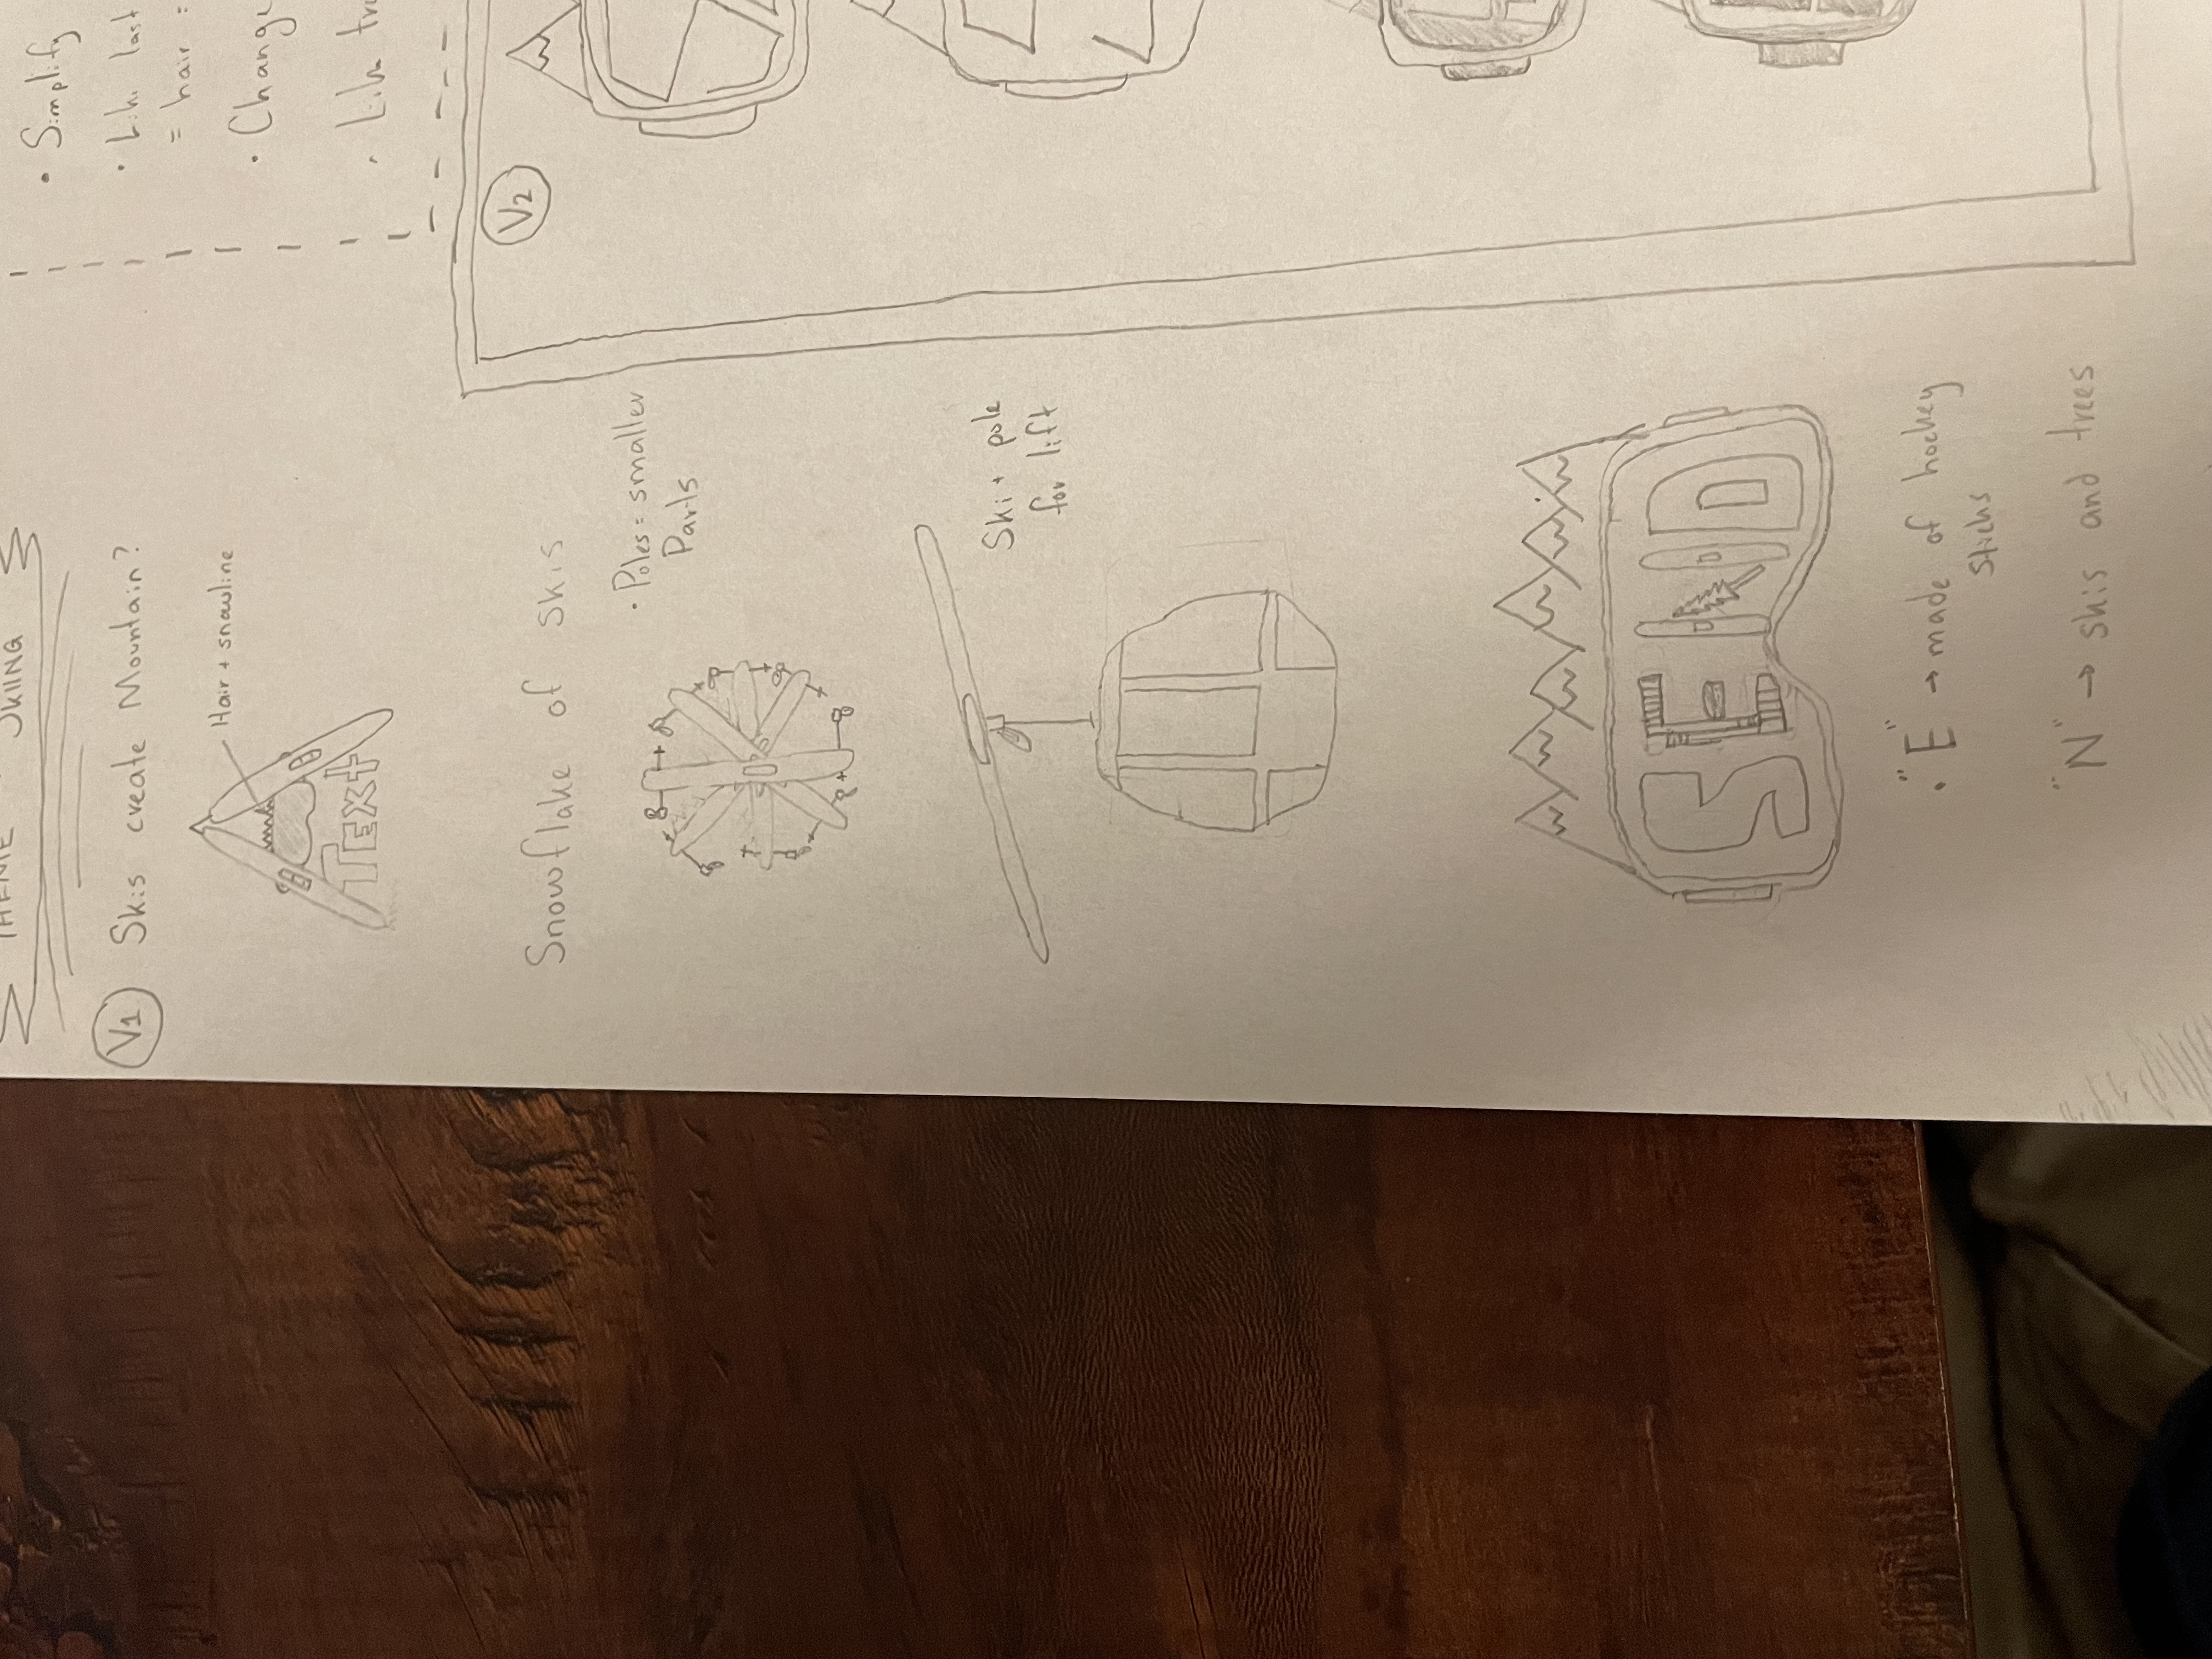 THEME SKIING
V1 Skis create Mountain?
Hair + snowline
Text
Snowflake of skis
• Poles = smaller
Parts
Ski + pole
for lift
SEND
• "E" → made of hockey
sticks
"N" → skis and trees
• Simplify
• Like last
= hair =
• Change
• Like
V2